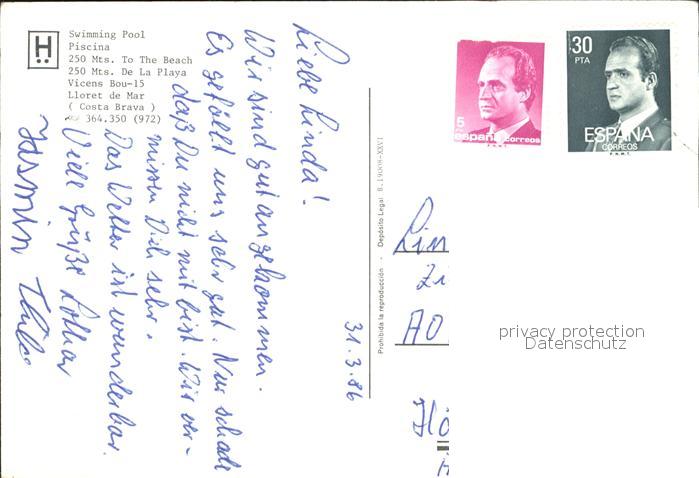 H
Swimming Pool
Piscina
250 Mts. To The Beach
250 Mts. De La Playa
Vicens Bou-15
Lloret de Mar
( Costa Brava )
364.350 (972)
Liebe Linda!
Wir sind gut angekommen.
Es gefällt uns sehr gut. Nur schade
daß Du nicht mit bist. Wir ver-
missen Dich sehr.
Das Wetter ist wunderbar.
Viele Grüße Lothar
Jasmin
31.3.86
Prohibida la reproducción - Depósito Legal B. 19008-XXVI
5
españa correos
F.N.M.T.
30
PTA
ESPAÑA
CORREOS
F.N.M.T.
Lin
Zi
AO
privacy protection
Datenschutz
Hö